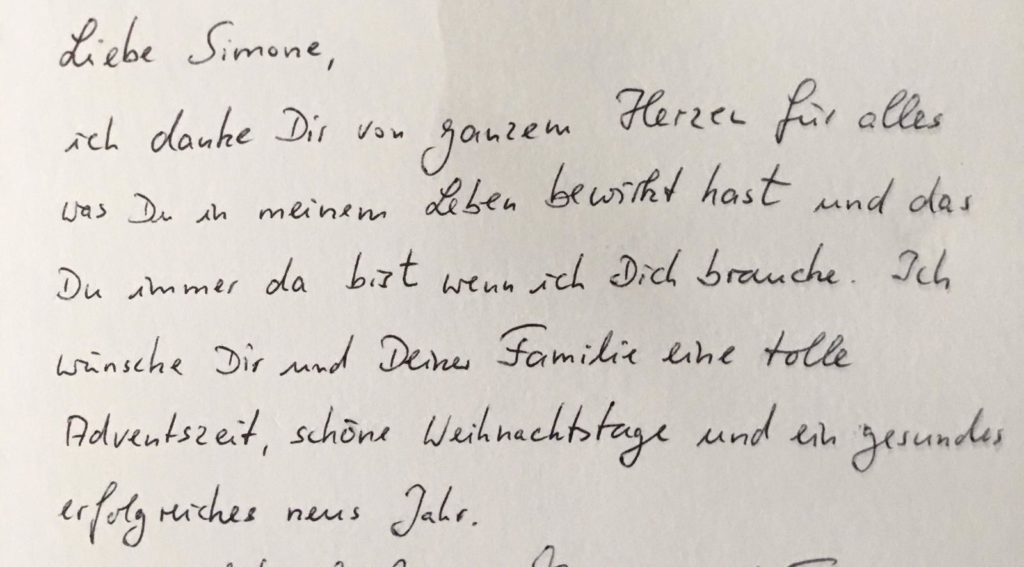 Liebe Simone,
ich danke Dir von ganzem Herzen für alles
was Du in meinem Leben bewirkt hast und das
Du immer da bist wenn ich Dich brauche. Ich
wünsche Dir und Deiner Familie eine tolle
Adventszeit, schöne Weihnachtstage und ein gesundes
erfolgreiches neus Jahr.